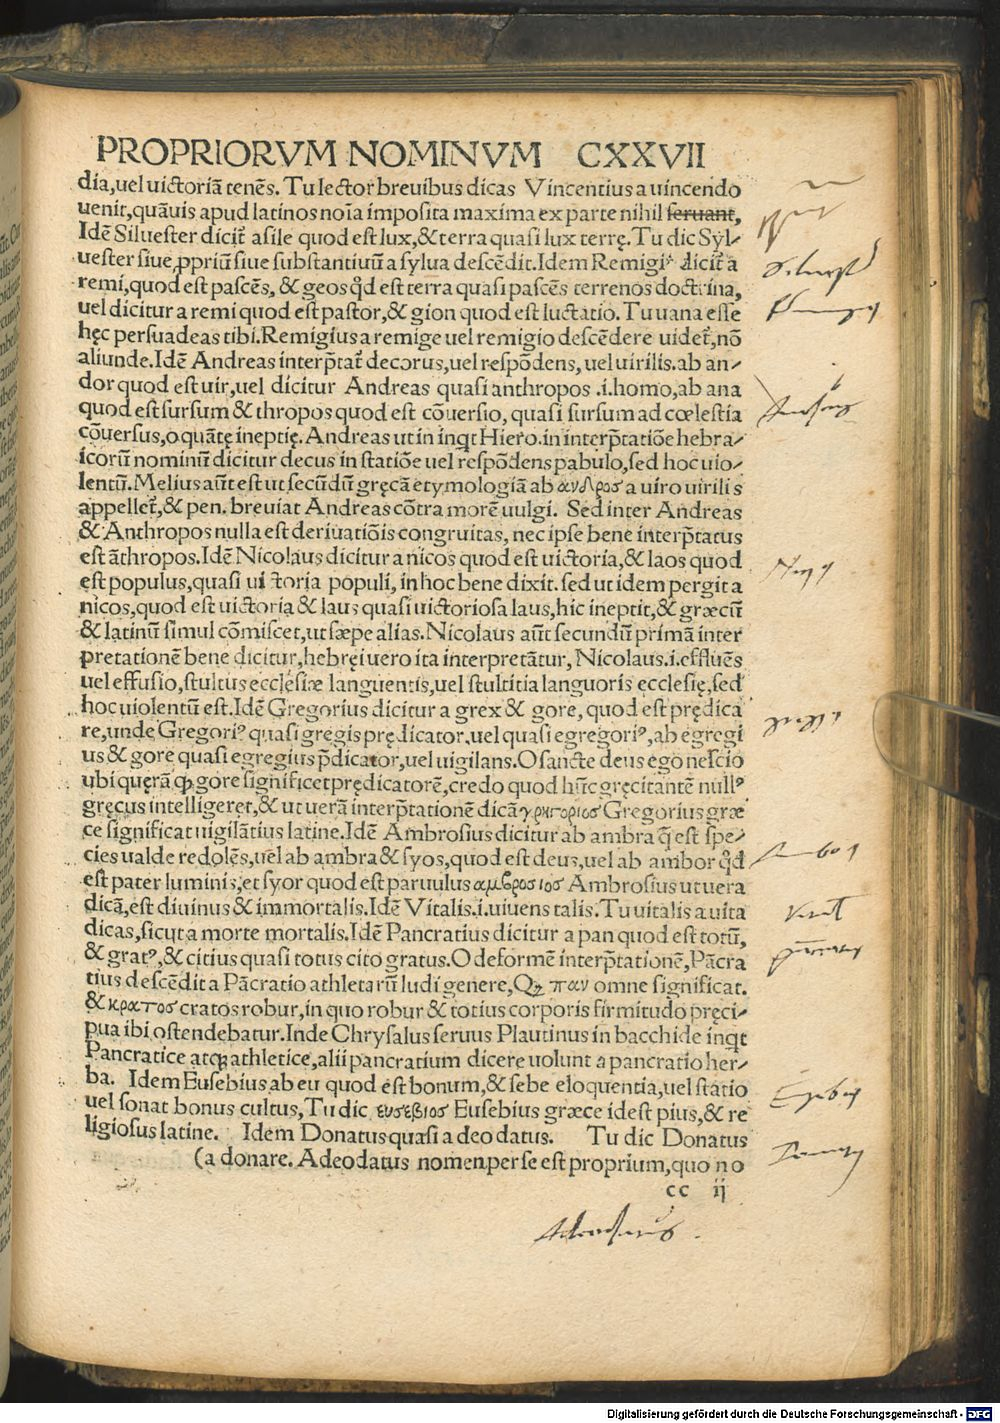 PROPRIORVM NOMINVM CXXVII
dia,uel uictoriã tenẽs. Tu lector breuibus dicas Vincentius a uincendo
uenit,quãuis apud latinos noĩa imposita maxima ex parte nihil seruant,
Idẽ Siluester dicit̃ a sile quod est lux,&terra quasi lux terrę. Tu dic Syl-
uester siue ꝓpriũ siue substantiuũ a sylua descẽdit. Idem Remigi⁹ dicit̃ a
remi,quod est pascẽs, & geos qd̃ est terra quasi pascẽs terrenos doctrina,
uel dicitur a remi quod est pastor,& gion quod est luctatio. Tu uana esse
hęc persuadeas tibi.Remigius a remige uel remigio descẽdere uidet̃,nõ
aliunde.Idẽ Andreas interp̃tat̃ decorus,uel respõdens, uel uirilis.ab an-
dor quod est uir,uel dicitur Andreas quasi anthropos .i.homo,ab ana
quod est sursum & thropos quod est cõuersio, quasi sursum ad cœlestia
cõuersus,o quãtę ineptię. Andreas ut in inqt Hiero.in interp̃tatiõe hebra-
icorũ nominũ dicitur decus in statiõe uel respõdens pabulo,sed hoc uio-
lentũ. Melius aũt est ut secũdũ gręcã etymologiã ab ανδρος a uiro uirilis
appellet̃,& pen. breuiat Andreas cõtra morẽ uulgi. Sed inter Andreas
& Anthropos nulla est deriuatiõis congruitas, nec ipse bene interp̃tatus
est ãthropos.Idẽ Nicolaus dicitur a nicos quod est uictoria,& laos quod
est populus,quasi ui toria populi, in hoc bene dixit. sed ut idem pergit a
nicos,quod est uictoria & laus quasi uictoriosa laus,hic ineptit,& græcũ
& latinũ simul cõmiscet,ut sæpe alias. Nicolaus aũt secundũ primã inter
pretationẽ bene dicitur,hebręi uero ita interpretãtur, Nicolaus.i.effluẽs
uel effusio,stultus ecclesiæ languentis,uel stultitia languoris ecclesię,sed
hoc uiolentũ est.Idẽ Gregorius dicitur a grex & gore, quod est prędica
re,unde Gregori⁹ quasi gregis prędicator.uel quasi egregori⁹,ab egregi
us & gore quasi egregius p̃dicator,uel uigilans. O sancte deus ego nescio
ubi quęrã ꝙ gore significet prędicatorẽ,credo quod hãc gręcitantẽ null⁹
gręcus intelligeret,& ut uerã interp̃tationẽ dicã γρηγοριοσ Gregorius græ
ce significat uigilãtius latine. Idẽ Ambrosius dicitur ab ambra q̃ est spe-
cies ualde redolẽs,uel ab ambra & syos,quod est deus,uel ab ambor qd̃
est pater luminis,et syor quod est paruulus αμβροσιος Ambrosius ut uera
dicã,est diuinus & immortalis. Idẽ Vitalis.i.uiuens talis. Tu uitalis a uita
dicas,sicut a morte mortalis. Idẽ Pancratius dicitur a pan quod est totũ,
& grat⁹,& citius quasi totus cito gratus. O deformẽ interp̃tationẽ,Pãcra
tius descẽdit a Pãcratio athletarũ ludi genere, Qꝫ παν omne significat.
& κρατος cratos robur,in quo robur & totius corporis firmitudo pręci-
pua ibi ostendebatur.Inde Chrysalus seruus Plautinus in bacchide inqt
Pancratice atqꝫ athletice,alii pancratium dicere uolunt a pancratio her-
ba. Idem Eusebius ab eu quod est bonum,& sebe eloquentia,uel statio
uel sonat bonus cultus, Tu dic ευσεβιος Eusebius græce idest pius,& re
ligiosus latine. Idem Donatus quasi a deo datus. Tu dic Donatus
(a donare. Adeodatus nomen per se est proprium,quo no
cc ij
Digitalisierung gefördert durch die Deutsche Forschungsgemeinschaft - DFG